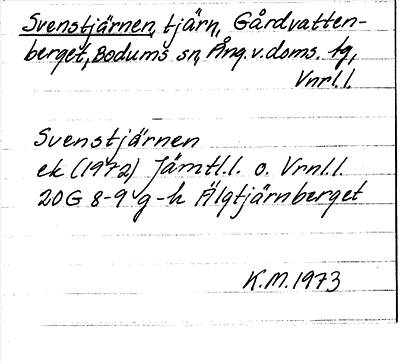 Svenstjärnen, tjärn, Gårdvatten-
berget, Bodums sn, Ång. v. doms. tg,
Vnrl.l.
Svenstjärnen
ek. (1972) Jämtl.l. o. Vrnl.l.
20G 8-9 g-h Älgtjärnberget
K.M. 1973